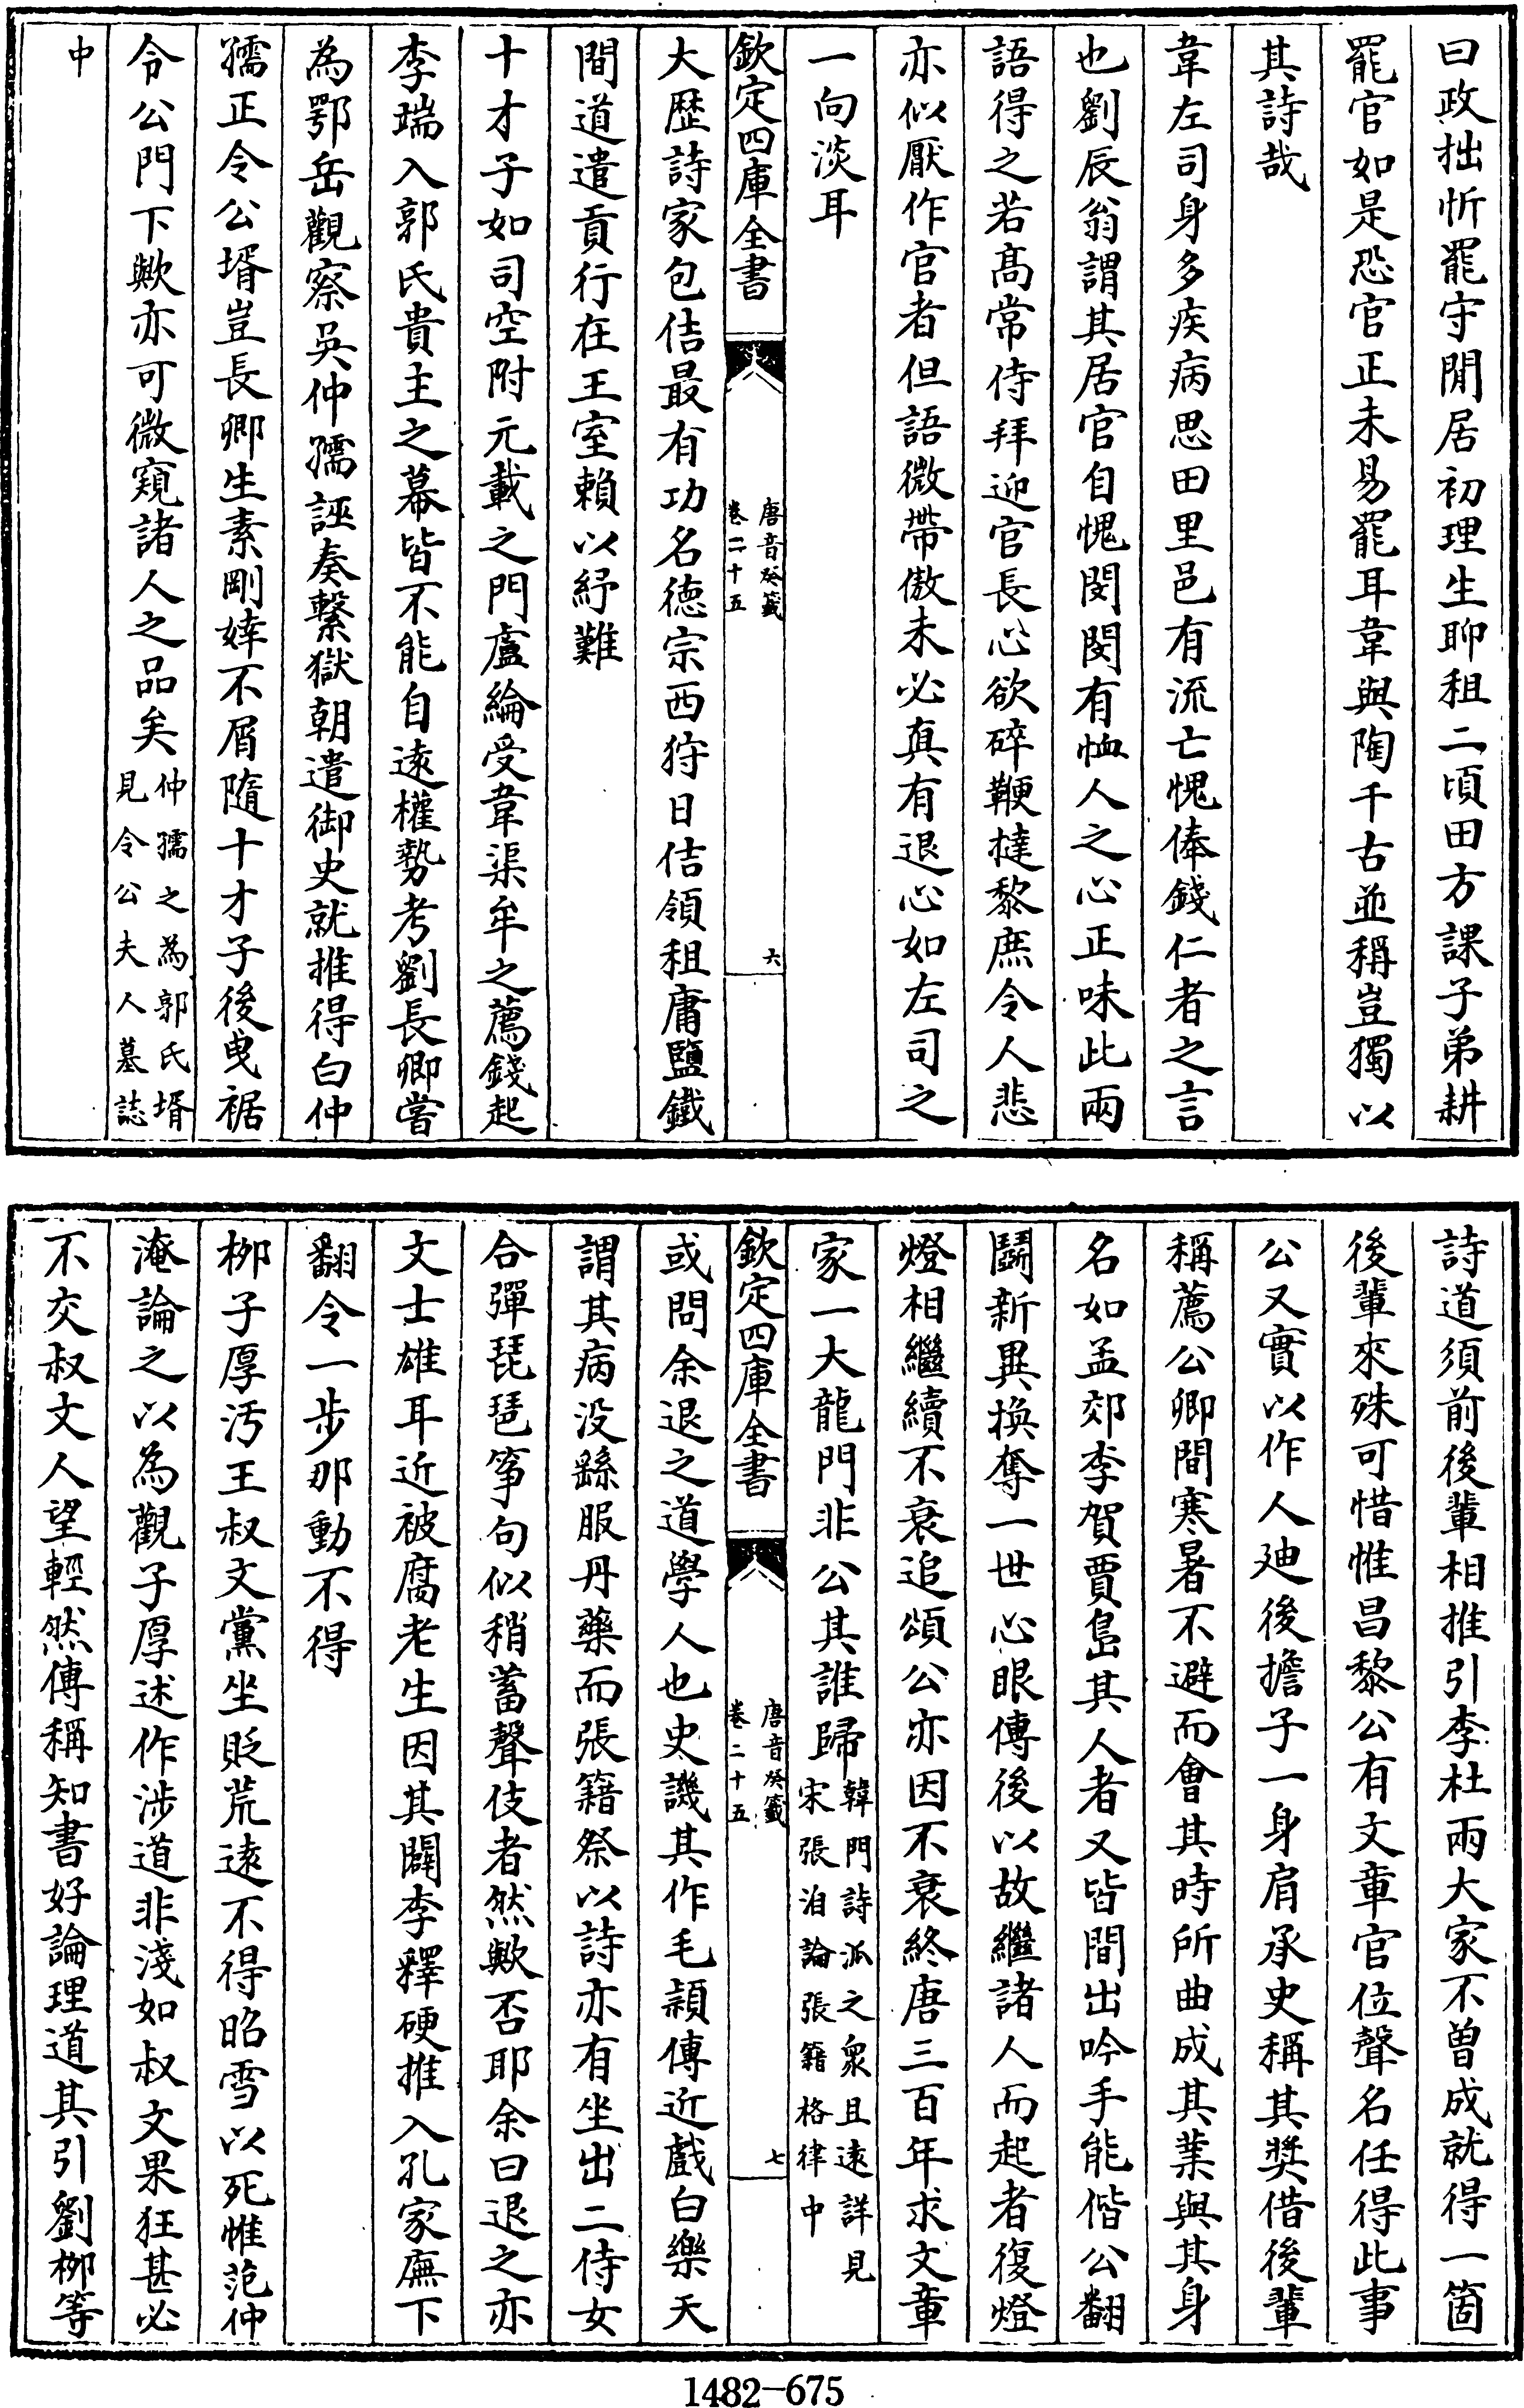 曰政拙忻罷守閒居初理生聊租二頃田方課子弟耕
罷官如是恐官正未易罷耳韋與陶千古並稱豈獨以
其詩哉
韋左司身多疾病思田里邑有流亡愧俸錢仁者之言
也劉辰翁謂其居官自愧閔閔有恤人之心正味此兩
語得之若高常侍拜迎官長心欲碎鞭撻黎庶令人悲
亦似厭作官者但語微帶傲未必真有退心如左司之
一向淡耳
欽定四庫全書
唐音癸籤
卷二十五
六
大歷詩家包佶最有功名德宗西狩日佶領租庸鹽鐵
間道遣貢行在王室賴以紓難
十才子如司空附元載之門盧綸受韋渠牟之薦錢起
李端入郭氏貴主之幕皆不能自遠權勢考劉長卿嘗
為鄂岳觀察吳仲孺誣奏繫獄朝遣御史就推得白仲
孺正令公壻豈長卿生素剛婞不屑隨十才子後曳裾
令公門下歟亦可微窺諸人之品矣
仲孺之為郭氏壻
見令公夫人墓誌
中
詩道須前後輩相推引李杜兩大家不曽成就得一箇
後輩來殊可惜惟昌黎公有文章官位聲名任得此事
公又實以作人廸後擔子一身肩承史稱其奬借後輩
稱薦公卿間寒暑不避而會其時所曲成其業與其身
名如孟郊李賀賈島其人者又皆間出吟手能偕公翻
鬬新異換奪一世心眼傳後以故繼諸人而起者復燈
燈相繼續不衰追頌公亦因不衰終唐三百年求文章
家一大龍門非公其誰歸
韓門詩派之衆且遠詳見
宋張洎論張籍格律中
欽定四庫全書
唐音癸籤
卷二十五
七
或問余退之道學人也史譏其作毛潁傳近戲白樂天
謂其病没繇服丹藥而張籍祭以詩亦有坐出二侍女
合彈琵琶箏句似稍蓄聲伎者然歟否耶余曰退之亦
文士雄耳近被腐老生因其闢李釋硬推入孔家廡下
翻令一步那動不得
柳子厚汚王叔文黨坐貶荒遠不得昭雪以死惟范仲
淹論之以為觀子厚述作涉道非淺如叔文果狂甚必
不交叔文人望輕然傳稱知書好論理道其引劉柳等
1482-675